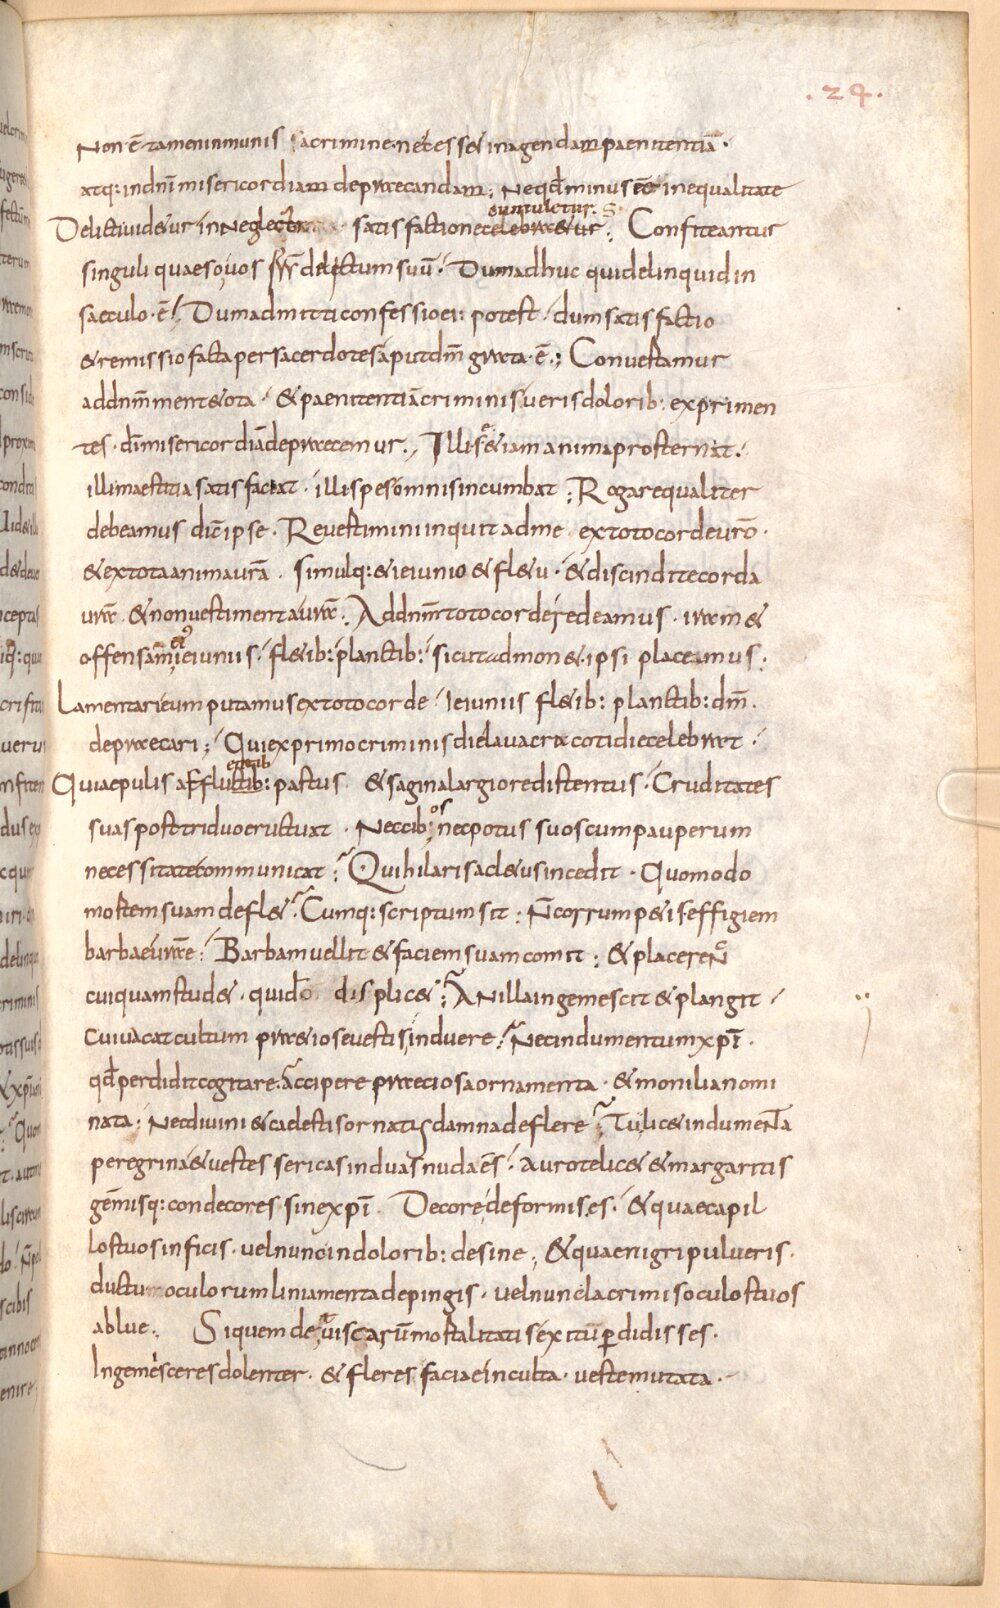 .24.
Non ē tamen inmunis a crimine. necesse ē in agendam paenitentiā.
atq: indnī misericordiam depraecandam; Neqđ minus eē inequalitate
Delicti uidetur in neglecta satisfactione celebraetur; cumuletur. Confiteantur
singuli quaeso uos frr̄ delictum suū. Dum adhuc qui delinquid in
saeculo. ē. Dum admitti confessio ei: potest. dum satisfactio
& remissio facta per sacerdotes aput dm̄ grata. ē; Conuertamur
ad dnm̄ mente tota. & paenitentiā criminis ueris dolorib: exprimen
tes. dī misericordiā depraecemur. Illi se etiam anima prosternat.
illi maestitia satisfaciat. illi spes omnis incumbat; Rogare qualiter
debeamus dic̄ ipse. Reuertimini inquit ad me ex toto corde uro.
& ex tota anima urā. simulq: & ieiunio & fletu. & discindite corda
urā. & non uestimenta urā. Ad dnm̄ toto corde redeamus. iram &
offensam ei ieiuniis. fletib: planctib: sicut admonet. ipsi placeamus;
Lamentari eum putamus ex toto corde. Ieiuniis fletib: planctib: dm̄.
depraecari; Qui ex primo criminis die lauacra cotidie celebrat.
Qui aepulis affluentib: pastus & sagina largiore distentus. Cruditates
suas post triduo cructuat. Nec cibos nec potus suos cum pauperum
necessitate communicat; Qui hilaris ac letus incedit. Quomodo
mortem suam deflet. Cumq: scriptum sit; N̄ corrumpetis effigiem
barbae urae. Barbam uellit & faciem suam comit; & placere N̄
cuiquam studet. qui do displicet; An illa ingemescit & plangit.
cui uacat cultum praetiosae uestis induere. Nec indumentum xpī.
qđ perdidit cogitare. Accipere praetiosa ornamenta. & monilia nomi
nata. Nec diuini & caelestis ornatus damna deflere. Tu licet indumenta
peregrina & uestes sericas induas nuda ēs. Auro te licet & margaritis
gēmisq: condecores sine xpī Decore deformis es. & quae capil
los tuos inficis. uel nunc in dolorib: desine; & quae nigri pulueris.
ductu oculorum liniamenta depingis. uel nunc lacrimis oculos tuos
ablue. Si quem de tuis carū mortalitatis exitū ꝑdidisses.
Ingemesceres dolenter. & fleres facie inculta. ueste mutata.